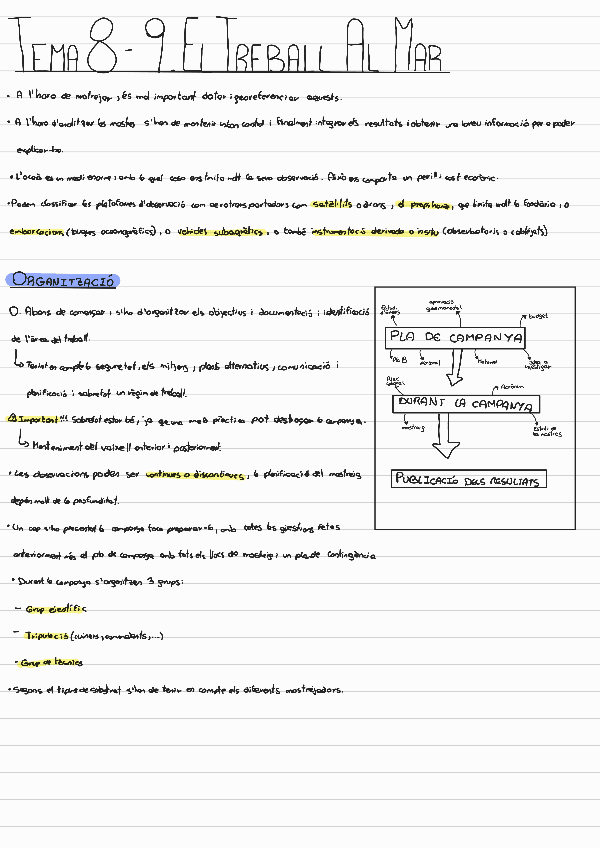 TEMA 8-9. EL TREBALL AL MAR
• A l'hora de mostrejar, és mol important datar i georeferenciar aquests.
• A l'hora d'analitzar les mostres s'han de mantenir i finalment integrar els resultats i obtenir una breu informació per a poder
explicar-ho.
• L'oceà es un medi enorme i amb la qual cosa ens limita molt la seva observació. Això ens comporta un perill i cost econòmic.
• Podem classificar les plataformes d'observació com aerotransportadors com satèl·lits o drons, el propi home, que limita molt la fondària, o
embarcacions (buques oceanogràfics), o vehicles subaquàtics, o també instrumentació derivada o insitu (observatoris o cablejats)
ORGANITZACIÓ
O. Abans de començar, s'ha d'organitzar els objectius i documentació i identificació
de l'àrea del treball.
↳ Tenint en compte la seguretat, els mitjans, plans alternatius, comunicació i
planificació i sobretot un règim de treball.
Important!!! Sobretot estar bé, ja que una mala pràctica pot destrossar la campanya.
↳ Manteniment del vaixell anterior i posteriorment.
• Les observacions poden ser continues o discontinues, la planificació del mostreig
depèn molt de la profunditat.
• Un cop s'ha presentat la campanya toca preparar-la, amb totes les gestions fetes
anteriorment més el pla de campanya amb tots els llocs de mostreig i un pla de contingència
• Durant la campanya s'organitzen 3 grups:
- Grup científic
- Tripulació (cuiners, comandants, ...)
- Grup de tècnics
• Segons el tipus de substrat s'han de tenir en compte els diferents mostrejadors.
budget
PLA DE CAMPANYA
Pla B
Personal
Material
Idea a investigar
DURANT LA CAMPANYA
mostreig
Estudi de les mostres
PUBLICACIÓ DELS RESULTATS